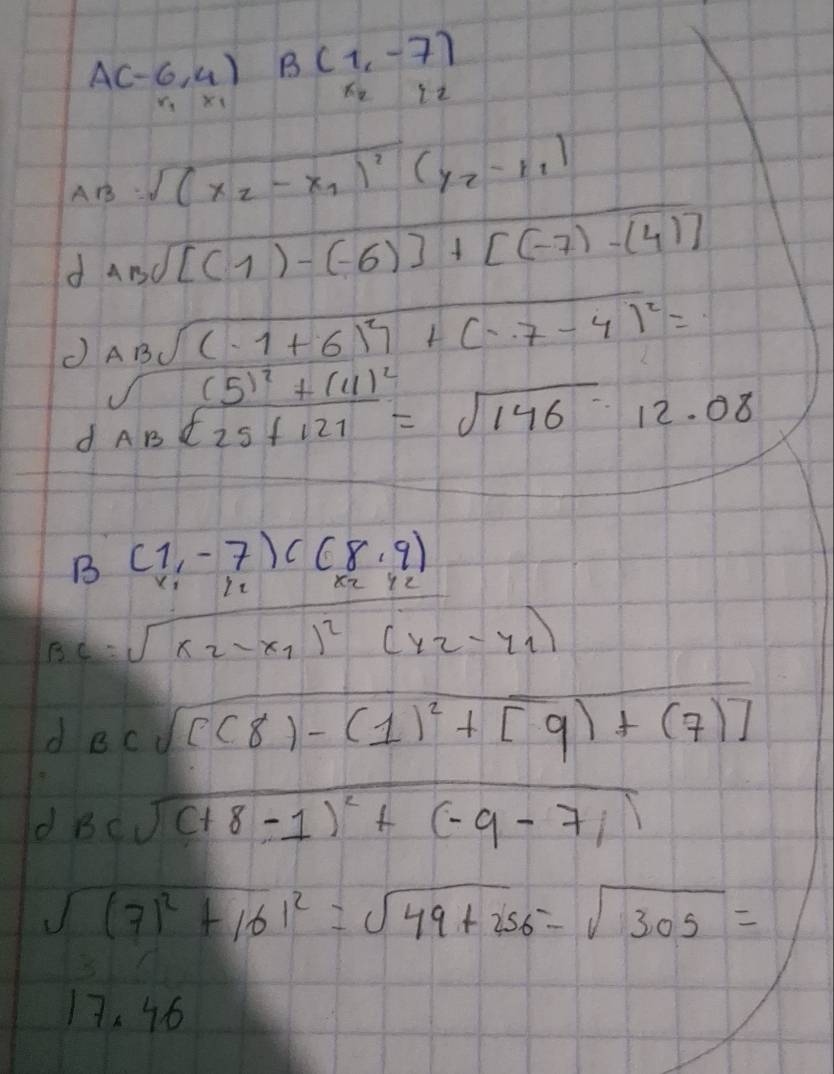 A(-6,4) B(1,-7)
x₁ x₁ x₂ y₂
AB = √(x₂-x₁)² (y₂-y₁)
d AB√[(1)-(-6)] + [(-7)-(4)]
d AB√(-1+6)²] + (-7-4)² =
√(5)² + (11)²
d AB √25+121 = √146 = 12.08
B (1,-7) C (8,9)
x₁ y₂ x₂ y₂
BC = √x₂-x₁)² (y₂-y₁)
d BC√[(8)-(1)² + [9)+(7)]
d BC√(+8-1)² + (-9-7)
√(7)² + 16)² = √49+256 = √305 =
17.46